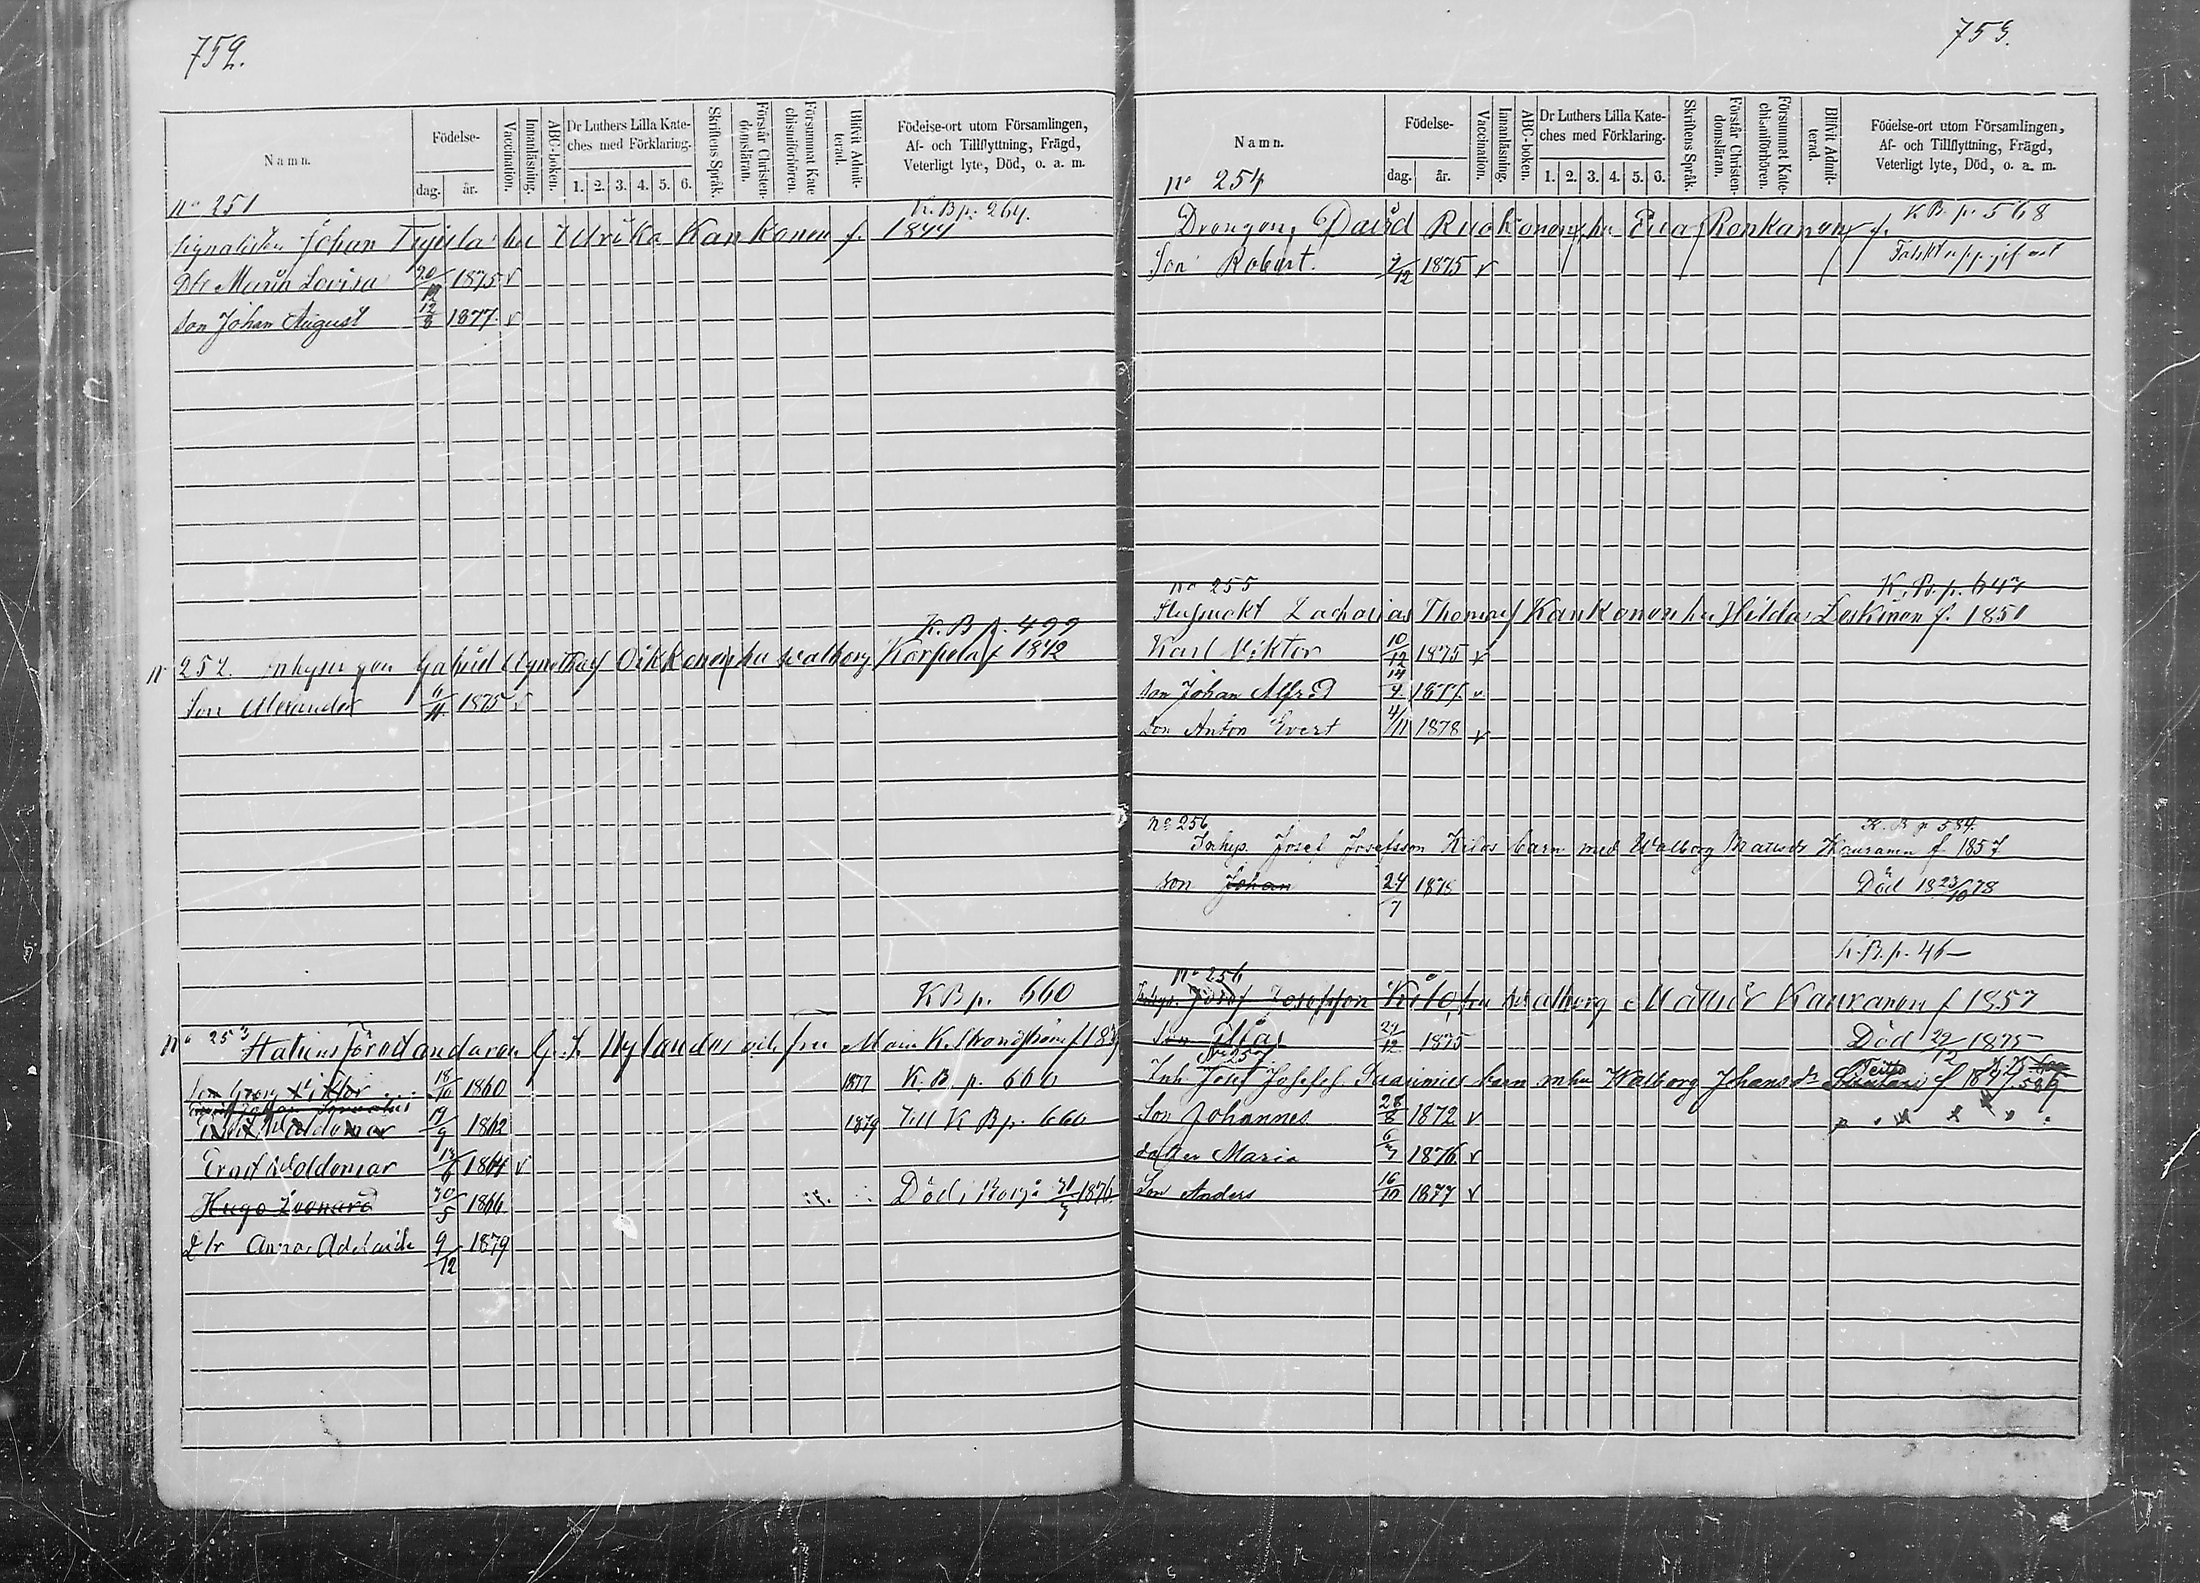 752.
Namn.
Födelse-
dag.
år.
Vaccination.
Innanläsning.
ABC-boken.
Dr Luthers Lilla Kate-
ches med Förklaring.
1. 2. 3. 4. 5. 6.
Skriftens Språk.
Förstår Christen-
domsläran.
Försummat Kate
chismiförhören.
Blifvit Admit-
terad.
Födelse-ort utom Församlingen,
Af- och Tillflyttning, Frägd,
Veterligt lyte, Död, o. a. m.
No 251
K. B p. 264.
Signalisten Johan hu Ulrika Kankonen f. 1844
Dtr Maria Lovisa 20/12 1875 v
Son Johan August 12/8 1877 v
K. B p. 499
No 252. Gabriel Oikkonen hu Walborg Korpela f 1842
Son Alexander 11 1875 v
K B p. 660
No 253 Nylander
Son Georg Viktor 18/10 1860 1877 K. B. p. 660
Ernst Woldemar 17/9 1862 1879 Till K B p. 660
Ernst Woldemar 1864 v
Hugo Leonard 30/5 1866 Död i Borgå 1876.
Dtr Anna Adelaide 9/12 1879
753.
Namn.
Födelse-
dag.
år.
Vaccination.
Innanläsning.
ABC-boken.
Dr Luthers Lilla Kate-
ches med Förklaring.
1. 2. 3. 4. 5. 6.
Skriftens Språk.
Förstår Christen-
domsläran.
Försummat Kate-
chismiförhören.
Blifvit Admit-
terad.
Födelse-ort utom Församlingen,
Af- och Tillflyttning, Frägd,
Veterligt lyte, Död, o. a. m.
No 254
K B. p. 568
David Ruokonen hu Eva Ronkanen f.
Son Robert. 1875 v
No 255
K. B. p. 647
Zacharias Thomasf Kankonen hu Hilda Leskinen f. 1851
Karl Viktor 10/12 1875 v
Son Johan Alfred 14 1877 v
Son Anton Evert 4/11 1878 v
No 256
K. B p 584.
Inhys. Josef Josefsson Kilos barn med Walborg Matsdr Kauranen f 1857
Son Johan 24/7 1878 Död 18 23/10 78
K. B. p. 46
No 256
Inhys. Josef Josefsson Kilo, hu Walborg Matsdr Kauranen f 1857
Son Elias 1875 Död 29/12 1875
No 257
Inh. Josef Josefsf barn m hu Walborg Johansdr Teitto
Son Johannes 28/8 1872 v
dotter Maria 1876 v
Son Anders 16/10 1877 v